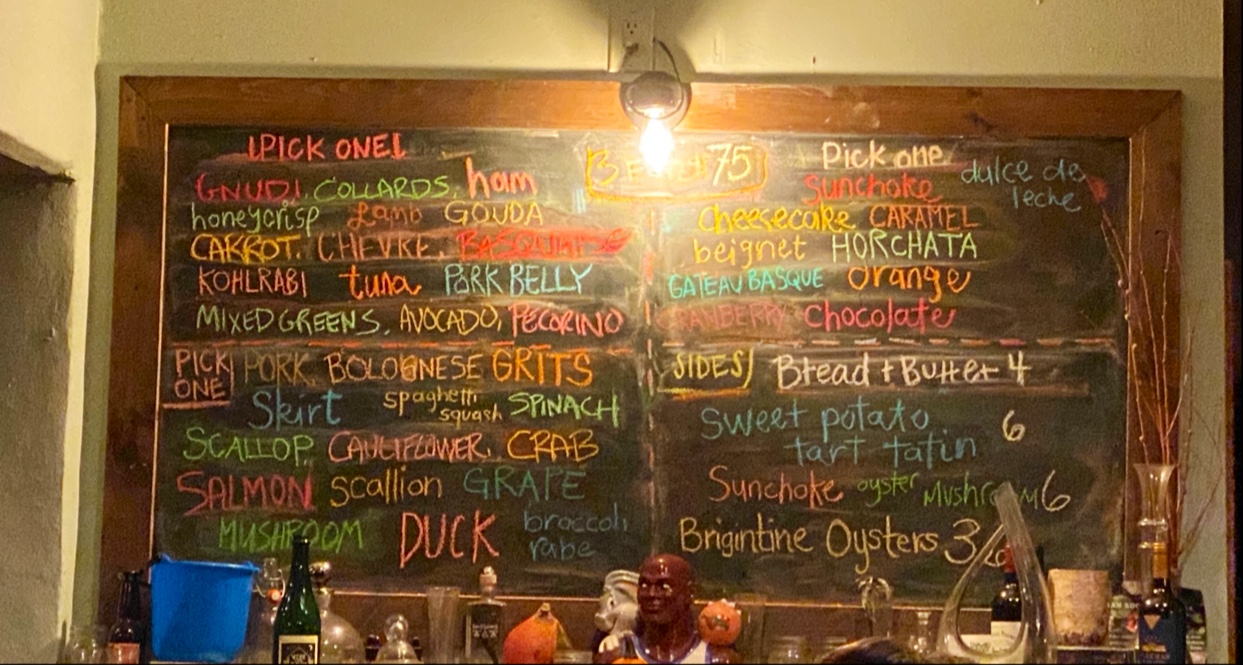 PICK ONE!
GNUDI, COLLARDS, ham
honeycrisp Lamb GOUDA
CARROT, CHEVRE,
KOHLRABI tuna PORK BELLY
MIXED GREENS, AVOCADO, PECORINO
PICK ONE
PORK BOLOGNESE GRITS
Skirt spaghetti squash SPINACH
SCALLOP, CAULIFLOWER, CRAB
SALMON scallion GRAPE
MUSHROOM DUCK broccoli rabe
75
Pick one
Sunchoke dulce de leche
Cheesecake CARAMEL
beignet HORCHATA
GATEAU BASQUE orange
CRANBERRY Chocolate
SIDES Bread + Butter 4
Sweet potato
tart tatin 6
Sunchoke oyster Mushroom 6
Brigintine Oysters